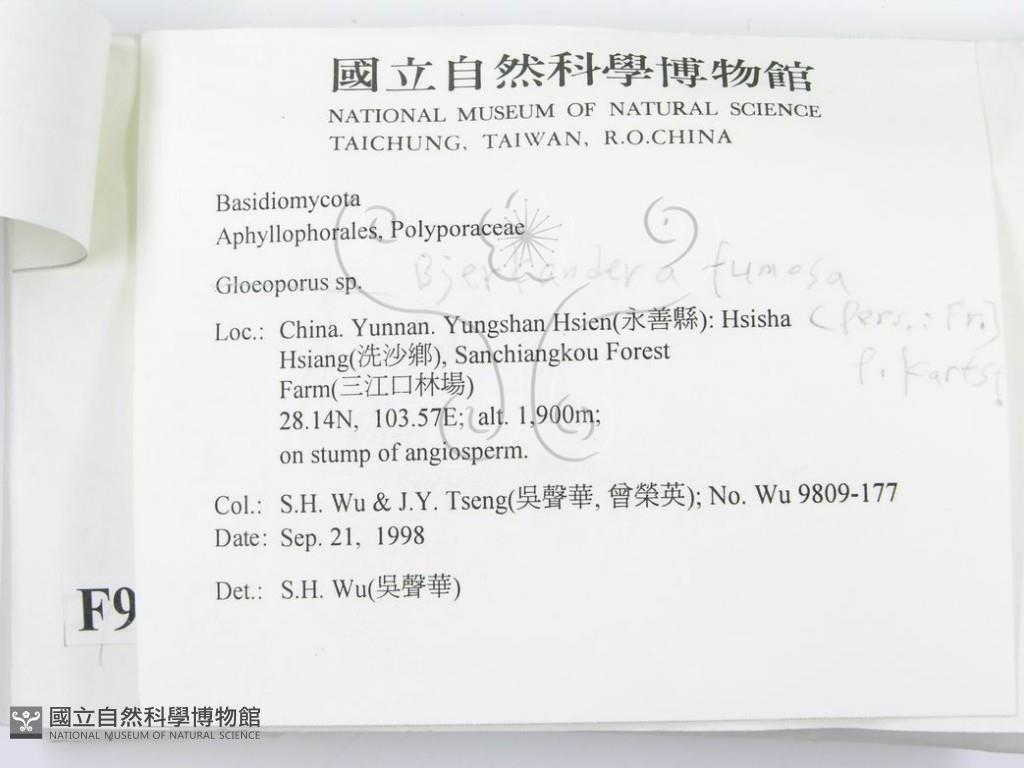 國立自然科學博物館
NATIONAL MUSEUM OF NATURAL SCIENCE
TAICHUNG, TAIWAN, R.O.CHINA
Basidiomycota
Aphyllophorales, Polyporaceae
Gloeoporus sp.
Bjerkandera fumosa
(Pers.: Fr.)
P. Karst.
Loc.: China. Yunnan. Yungshan Hsien(永善縣): Hsisha
Hsiang(洗沙鄉), Sanchiangkou Forest
Farm(三江口林場)
28.14N, 103.57E; alt. 1,900m;
on stump of angiosperm.
Col.: S.H. Wu & J.Y. Tseng(吳聲華, 曾榮英); No. Wu 9809-177
Date: Sep. 21, 1998
Det.: S.H. Wu(吳聲華)
F9
國立自然科學博物館
NATIONAL MUSEUM OF NATURAL SCIENCE